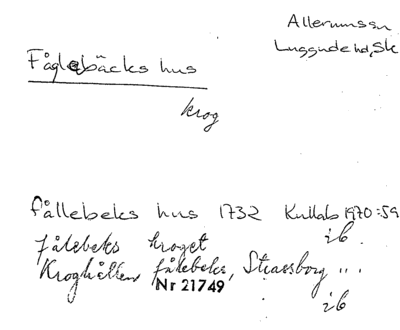 Allerumssn
Luggude hd, Sk
Fåglebäcks hus
krog
fållebeks hus 1732 Kullab 1970:59
fålebeks kroget ib.
Kroghållen fålebeks, Strassborg "..
Nr 21749
ib